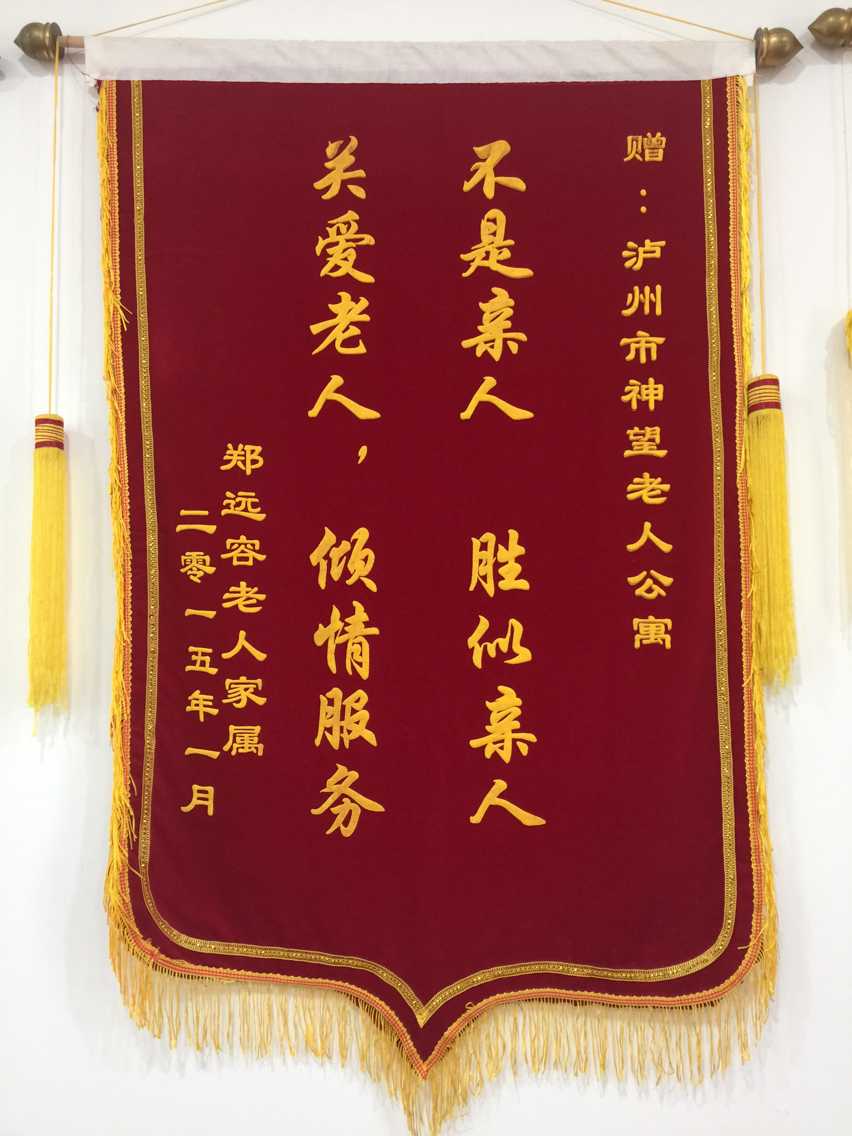 赠：泸州市神望老人公寓
不是亲人 胜似亲人
关爱老人，倾情服务
郑远容老人家属
二零一五年一月